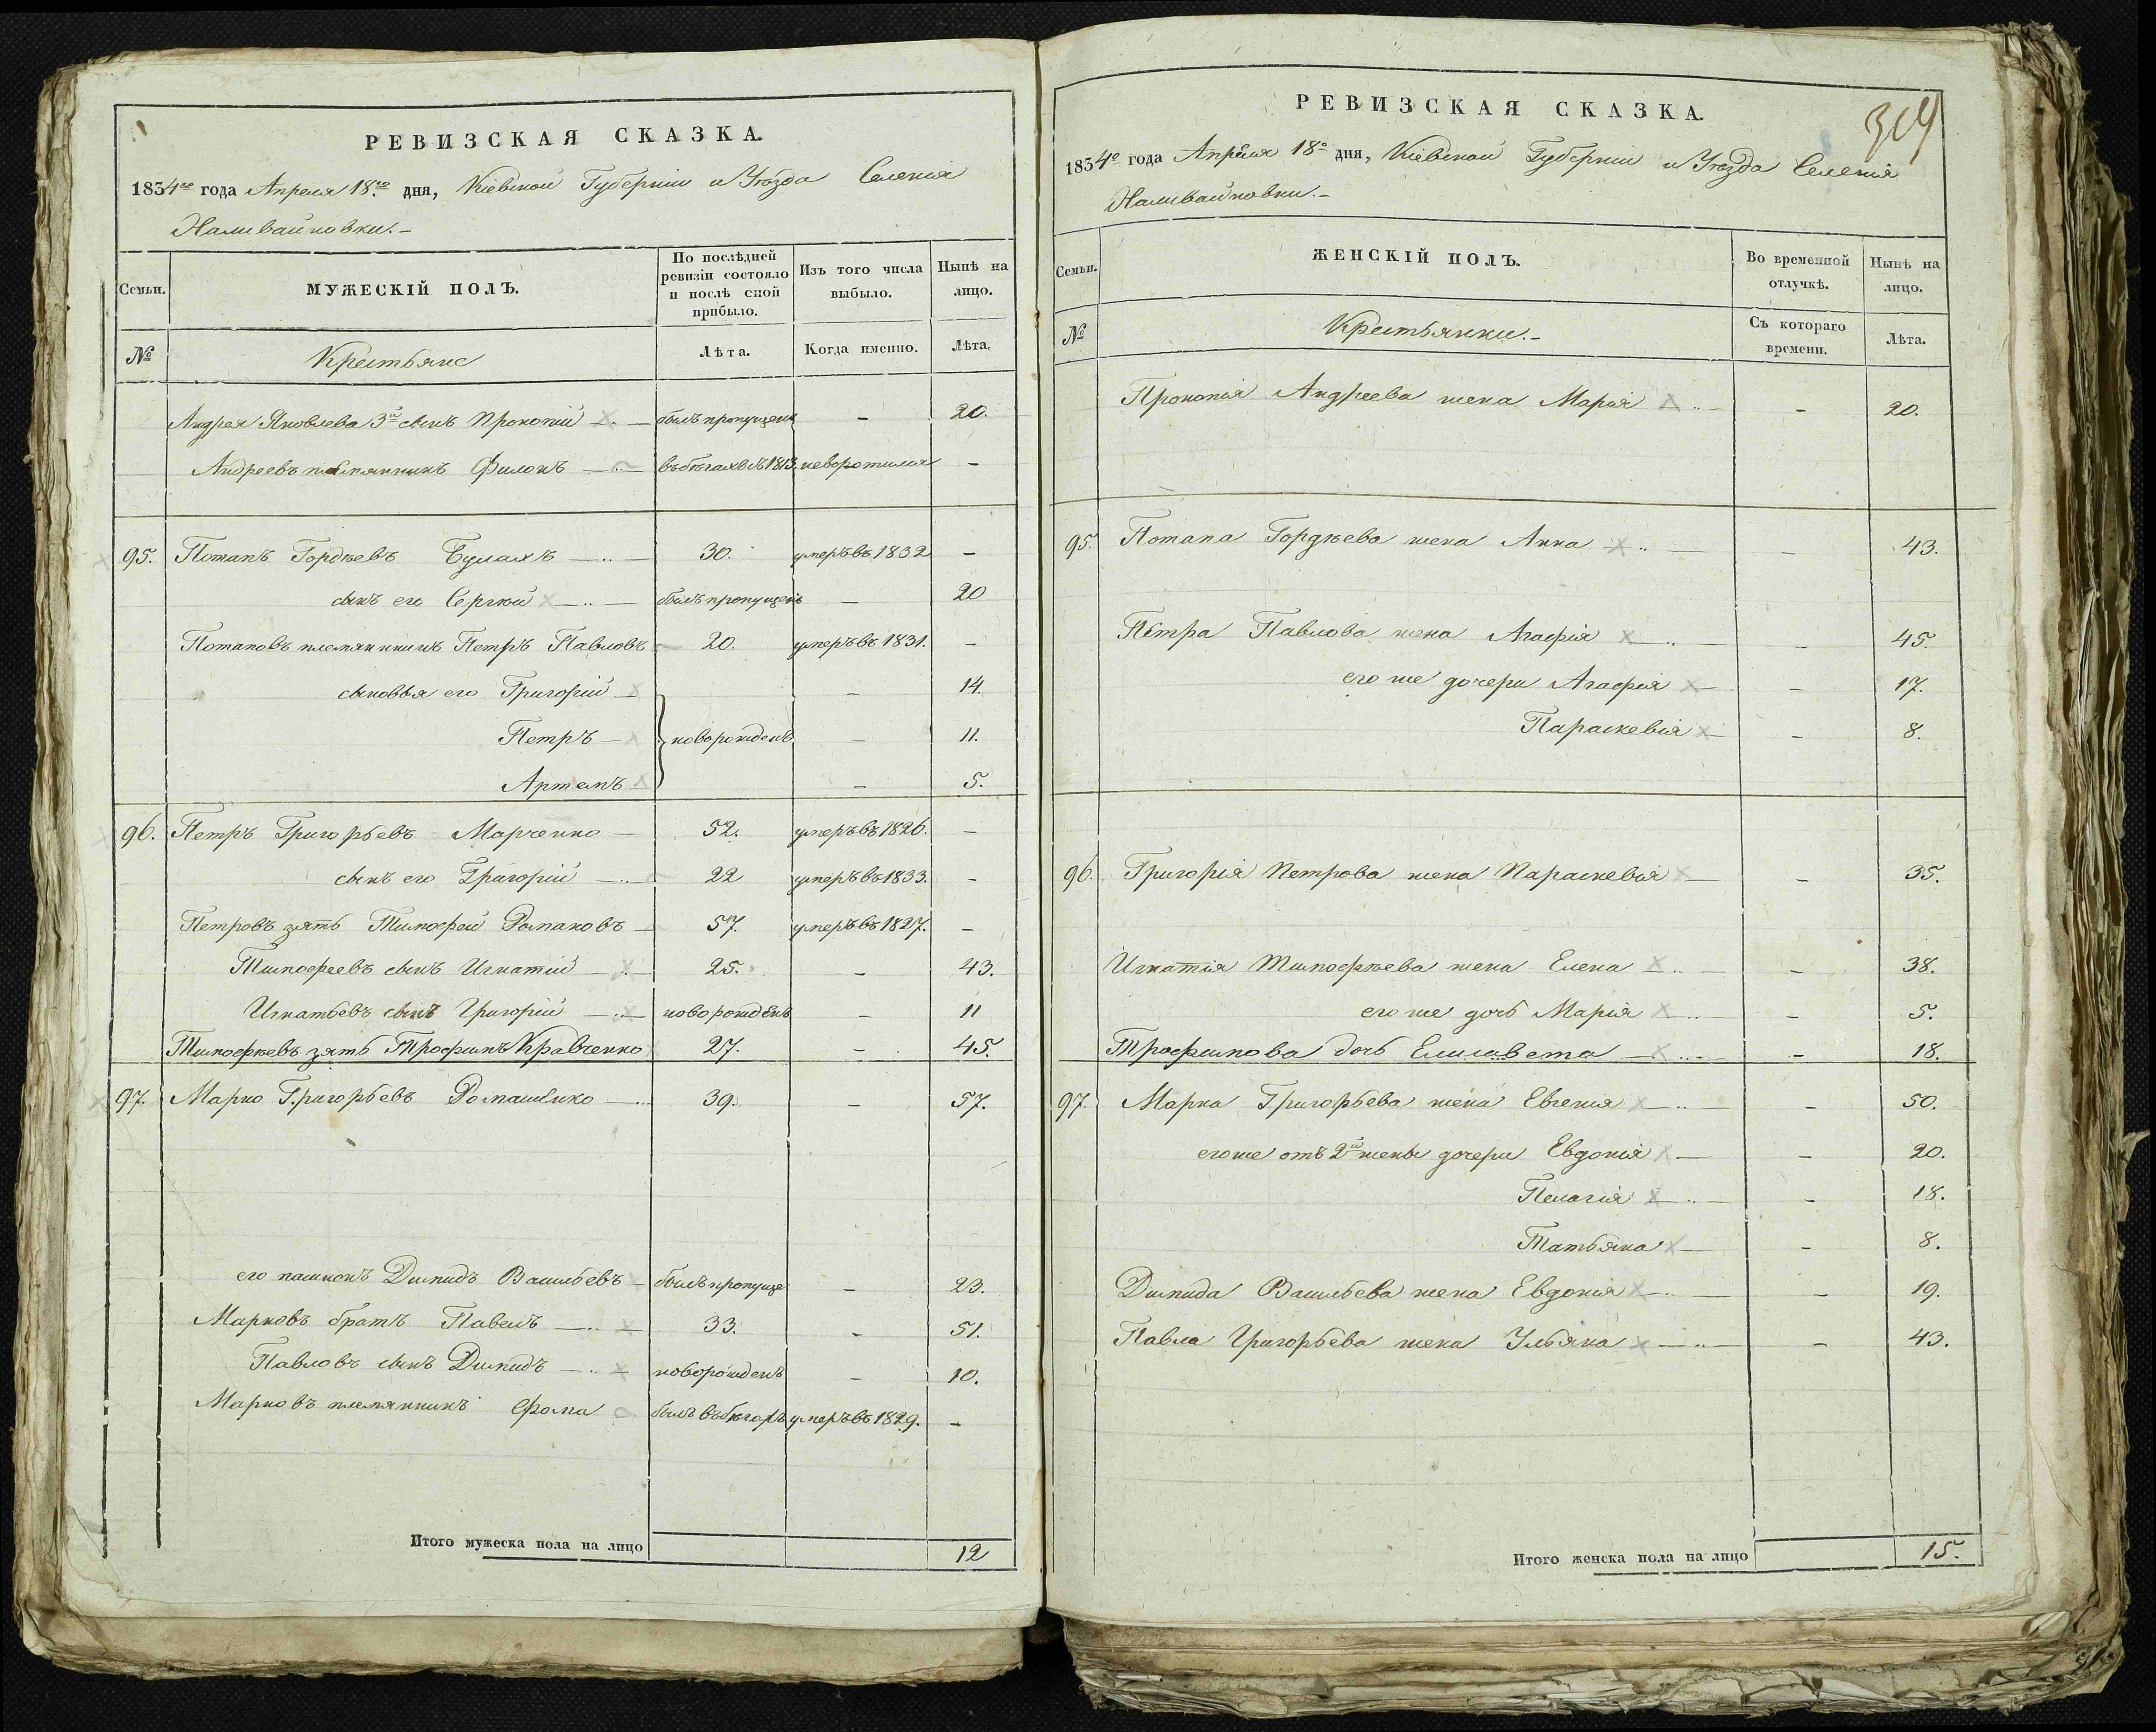 РЕВИЗСКАЯ СКАЗКА.
1834го года Апреля 18го дня, Кіевской Губерніи и Уѣзда Селенія
Наливайковки.-
Семьи.
МУЖЕСКІЙ ПОЛЪ.
По послѣдней ревизіи состояло и послѣ оной прибыло.
Изъ того числа выбыло.
Нынѣ на лицо.
№
Крестьяне
Лѣта.
Когда именно.
Лѣта.
Андрея Яковлева 3й сынъ Прокопій былъ пропущенъ - 20.
Андреевъ племянникъ Филонъ въ бѣгахъ съ 1813. неворотился -
95. Потапъ Гордѣевъ Булахъ 30. умеръ въ 1832 -
сынъ его Сергѣй былъ пропущенъ - 20
Потаповъ племянникъ Петръ Павловъ 20. умеръ въ 1831. -
сыновья его Григорій - 14.
Петръ новорожденъ - 11.
Артемъ - 5.
96. Петръ Григорьевъ Марченко 52. умеръ въ 1826. -
сынъ его Григорій 22 умеръ въ 1833. -
Петровъ зять Тимофей Романовъ 57. умеръ въ 1827. -
Тимофеевъ сынъ Игнатій 25. - 43.
Игнатьевъ сынъ Григорій новорожденъ - 11
Тимофѣевъ зять Трофимъ Кравченко 27. - 45.
97. Марко Григорьевъ Ромашенко 39. - 57.
его пашнокъ Демидъ Васильевъ былъ пропуще - 23.
Марковъ братъ Павелъ 33. - 51.
Павловъ сынъ Демидъ новорожденъ - 10.
Марковъ племянникъ Фома былъ въ бѣгахъ умеръ въ 1829. -
Итого мужеска пола на лицо 12
РЕВИЗСКАЯ СКАЗКА.
304
1834о года Апреля 18о дня, Кіевской Губерніи и Уѣзда Селенія
Наливайковки.-
Семьи.
ЖЕНСКІЙ ПОЛЪ.
Во временной отлучкѣ.
Нынѣ на лицо.
№
Крестьянки.-
Съ котораго времени.
Лѣта.
Прокопія Андреева жена Марія - 20.
95. Потапа Гордѣева жена Анна - 43.
Петра Павлова жена Агафія - 45.
его же дочери Агафія - 17.
Параскевія - 8.
96. Григорія Петрова жена Параскевія - 35.
Игнатія Тимофѣева жена Елена - 38.
его же дочь Марія - 5.
Трофимова дочь Елисавета - 18.
97. Марка Григорьева жена Евгенія - 50.
его же отъ 2й жены дочери Евдокія - 20.
Пелагія - 18.
Татьяна - 8.
Демида Васильева жена Евдокія - 19.
Павла Григорьева жена Ульяна - 43.
Итого женска пола на лицо 15.